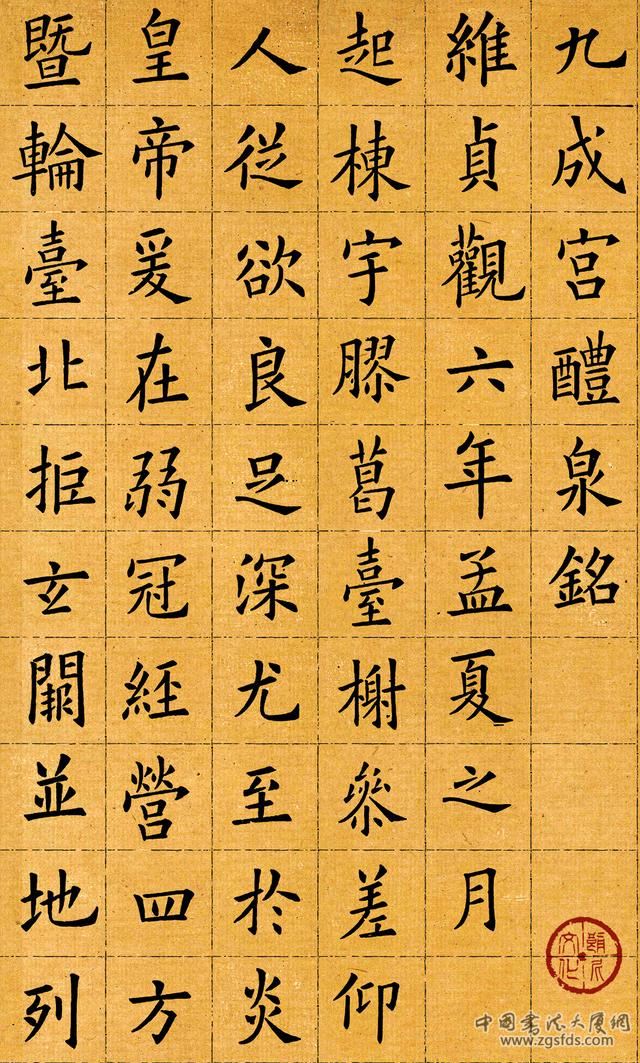 九成宮醴泉銘
維貞觀六年孟夏之月
起棟宇膠葛臺榭參差仰
人從欲良足深尤至於炎
皇帝爰在弱冠經營四方
暨輪臺北拒玄闕並地列
中國書法大廈網
www.zgsfds.com